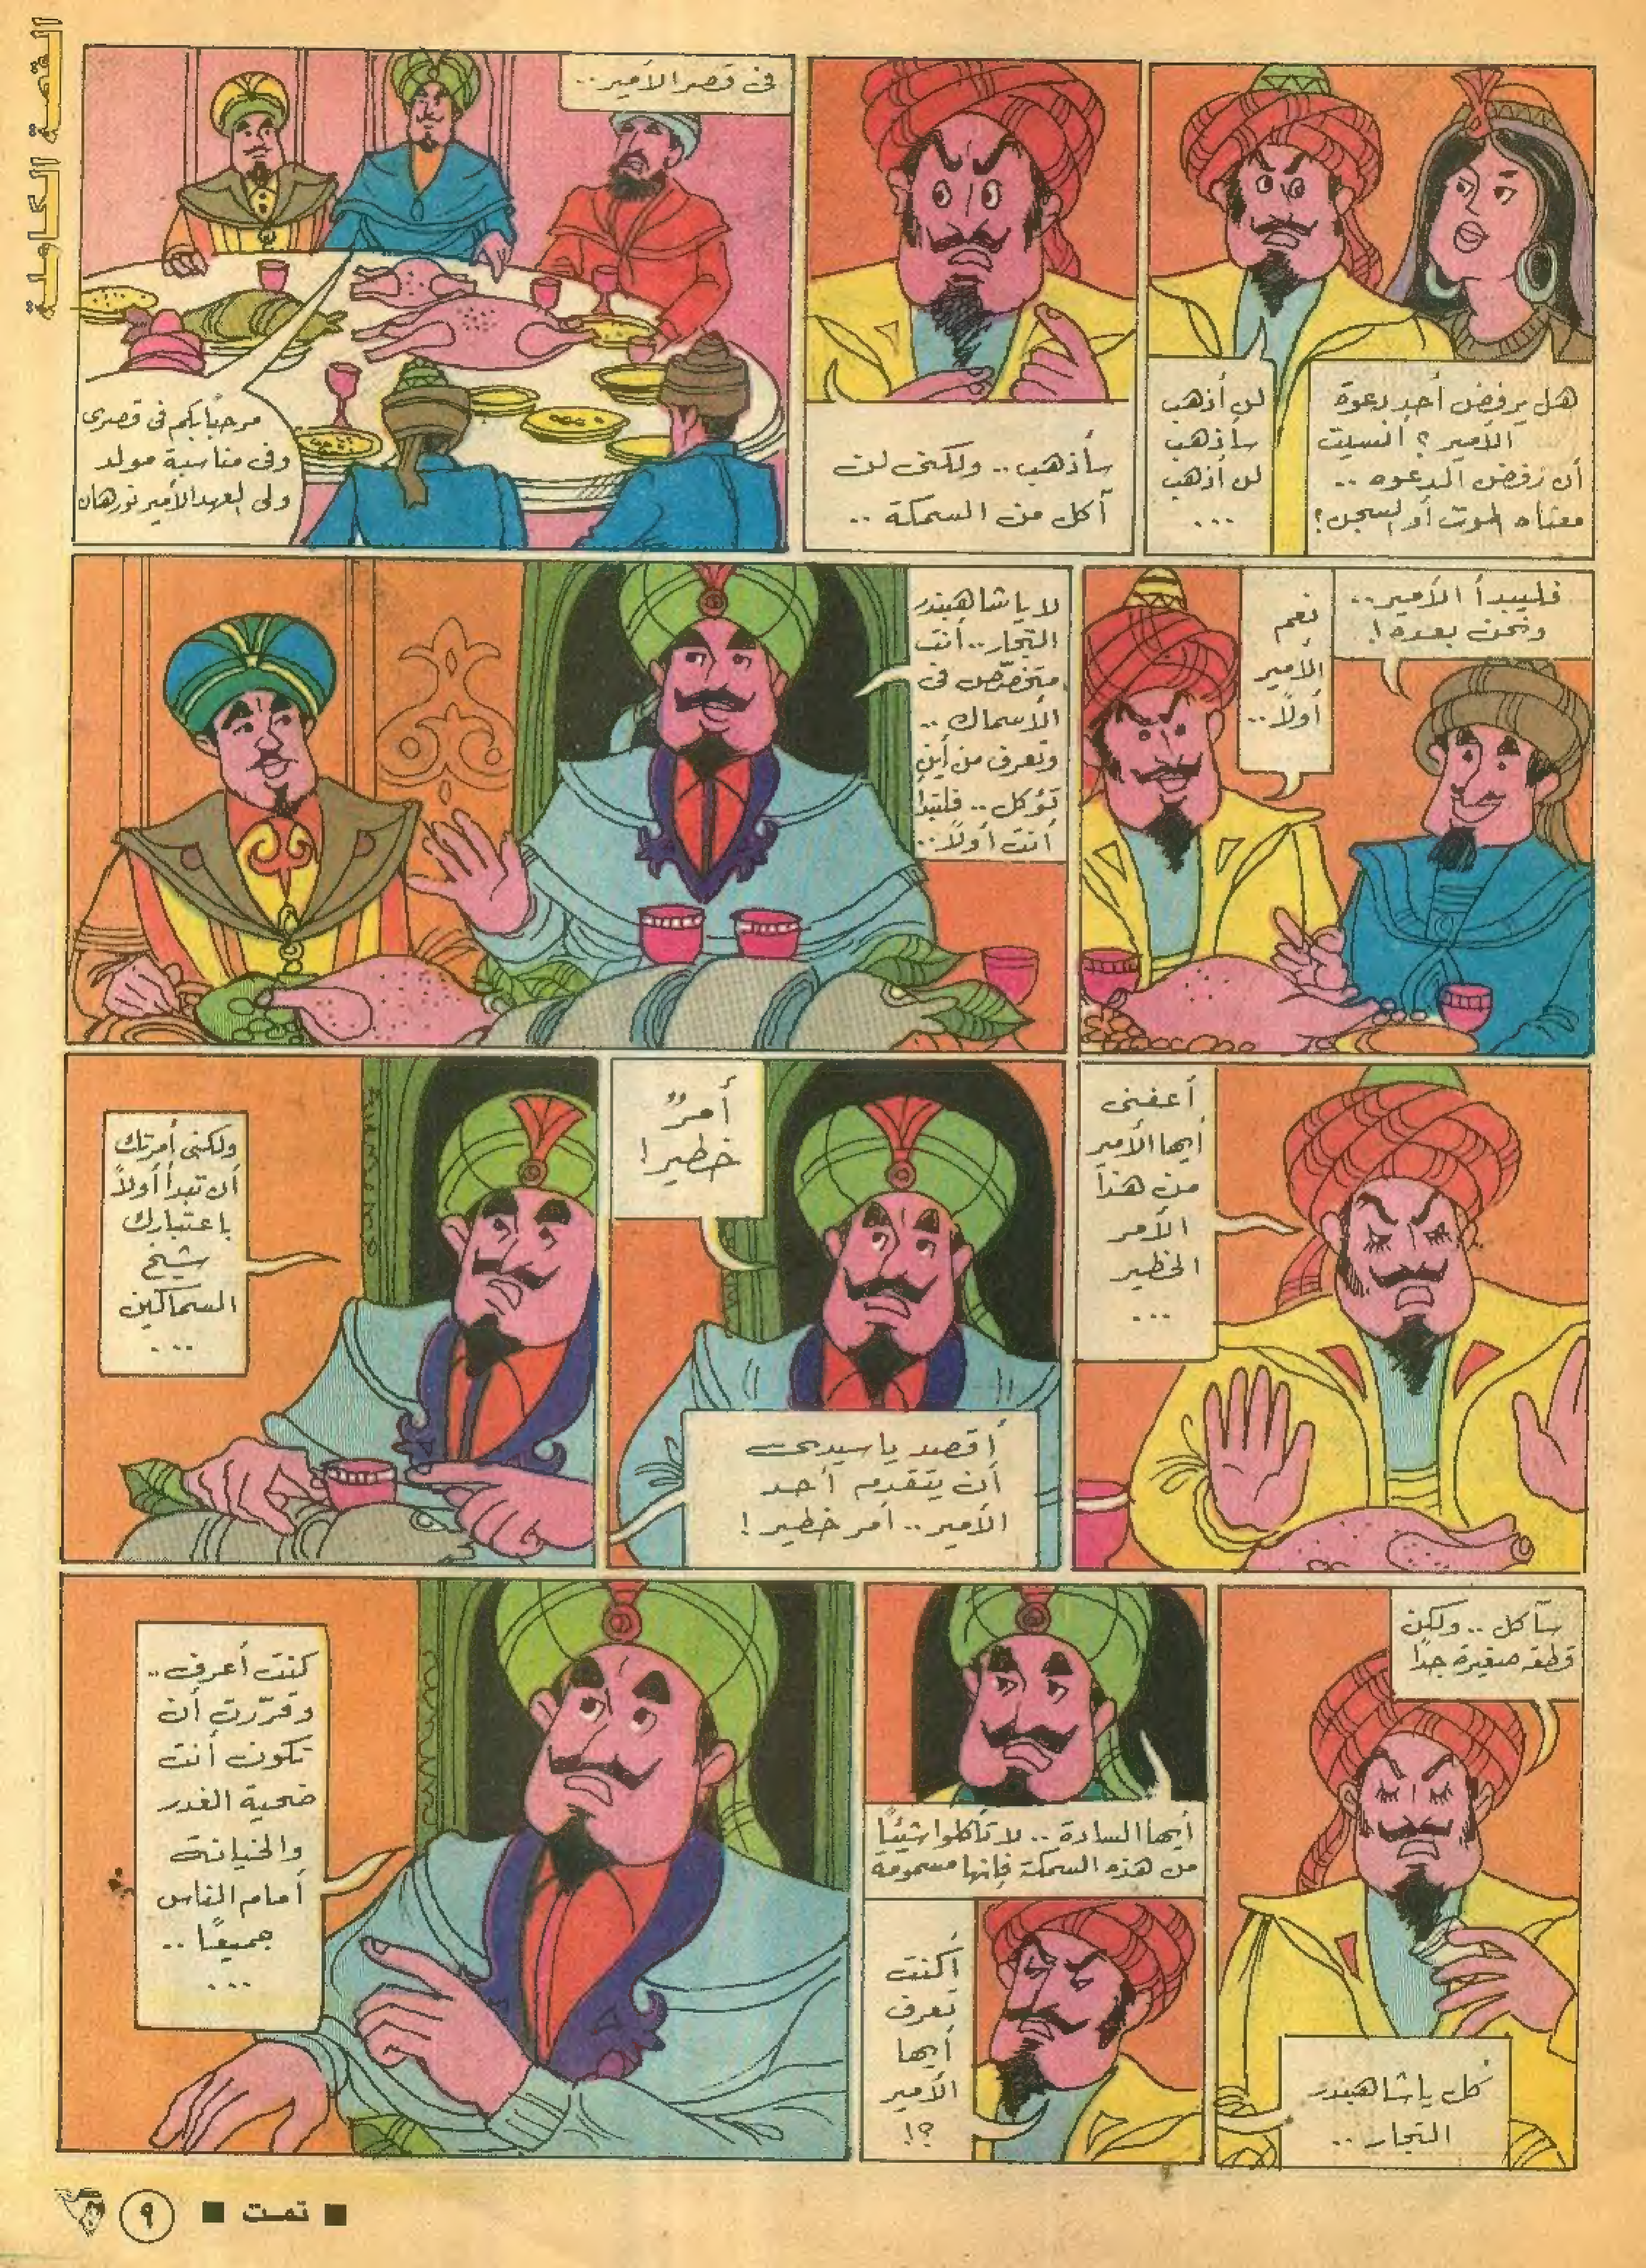 القصة الكاملة
هل يرفض أحد دعوة
الأمير؟ أنسيت
أن رفض الدعوه ..
معناه الموت أو السجن؟
لن أذهب
سأذهب
لن أذهب
...
سأذهب .. ولكنى لن
آكل من السمكة ..
فى قصر الأمير ..
مرحبًا بكم فى قصرى
وفى مناسبة مولد
ولى العهد الأمير نورهان
فليبدأ الأمير ..
ونحن بعده!
نعم
الأمير
أولاً ..
لا يا شاهبندر
التجار .. أنت
متخصّص فى
الأسماك ..
وتعرف من أين
تؤكل .. فلتبدأ
أنت أولاً ..
أعفنى
أيها الأمير
من هذا
الأمر
الخطير
...
أمرٌ
خطير!
أقصد يا سيدى
أن يتقدم أحد
الأمير .. أمر خطير!
ولكنى أمرتك
أن تبدأ أولاً
باعتبارك
شيخ
السماكين
...
سآكل .. ولكن
قطعه صغيرة جدًا
كل يا شاهبندر
التجار ..
أيها السادة .. لا تأكلوا شيئًا
من هذه السمكة فإنها مسمومه
أكنت
تعرف
أيها
الأمير
؟!
كنت أعرف ..
وقرّرت أن
تكون أنت
ضحية الغدر
والخيانة
أمام الناس
جميعًا ..
...
■ تمت ■
٩